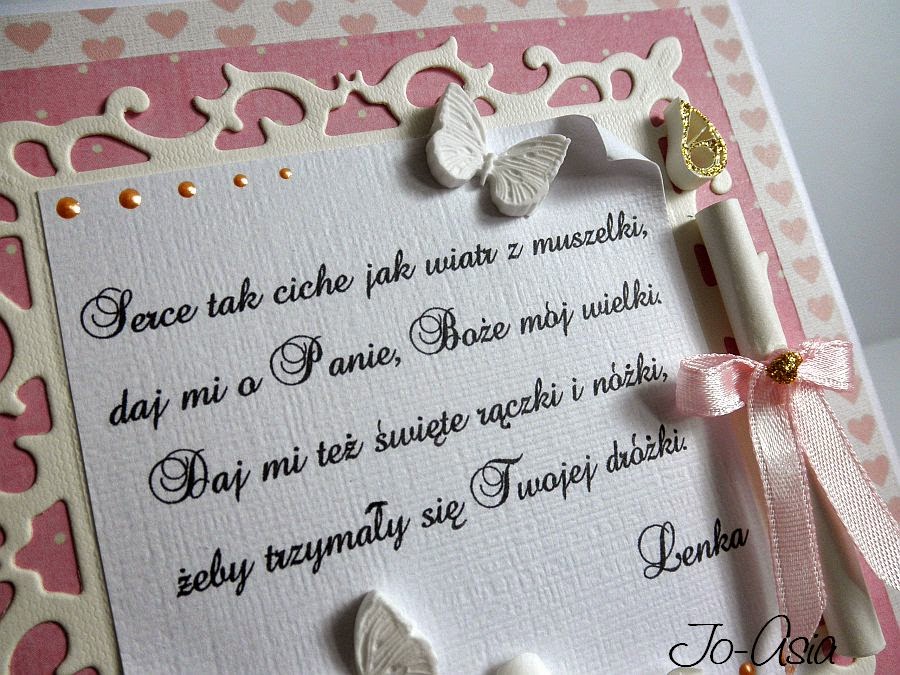 Serce tak ciche jak wiatr z muszelki,
daj mi o Panie, Boże mój wielki.
Daj mi też święte rączki i nóżki,
żeby trzymały się Twojej dróżki.
Lenka
Jo-Asia